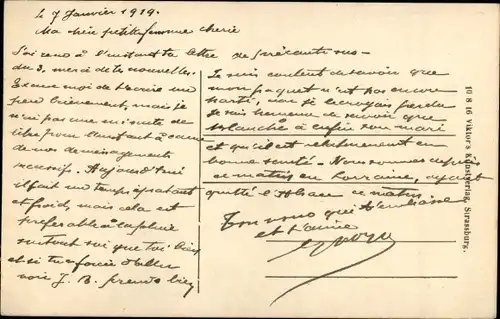 Le 7 Janvier 1919.
Ma chère petite femme chérie
J'ai reçu à l'instant ta lettre de
du 3. merci de tes nouvelles.
Excuse moi de t'écrire un
peu brièvement, mais je
n'ai pas une minute de
libre pour l'instant à cause
de nos déménagements
successifs. Aujourd'hui
il fait un temps épatant
et froid, mais cela est
préférable à la pluie
surtout
et si tu
voir J. B. prends bien
Je suis content de savoir que
mon paquet n'est pas encore
parti, car je le croyais perdu
Je suis heureux de savoir que
Blanche a enfin son mari
et qu'il est relativement en
bonne santé. Nous sommes depuis
ce matin en Lorraine, ayant
quitté l'Alsace ce matin
Ton
et t'aime
10 8 16 Viktor's Kunstverlag, Strassburg.